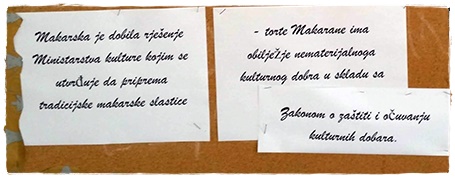 Makarska je dobila rješenje
Ministarstva kulture kojim se
utvrđuje da priprema
tradicijske makarske slastice
- torte Makarane ima
obilježje nematerijalnoga
kulturnog dobra u skladu sa
Zakonom o zaštiti i očuvanju
kulturnih dobara.